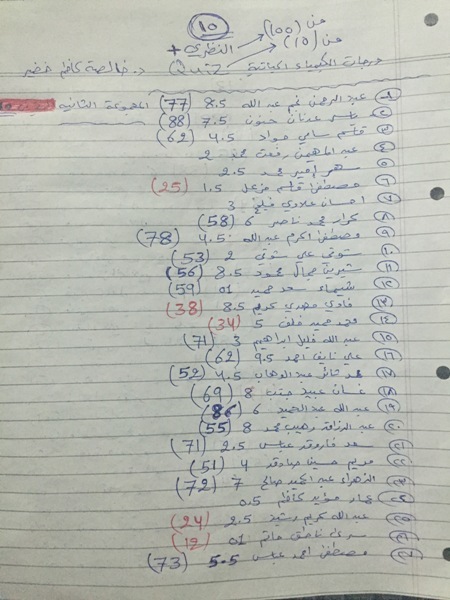 ١٥
من (100)
+ النظري من (10)
درجات الكيمياء الحياتية Quiz د. خالصة كاظم خضر
المجموعة الثانية
عبد الرحمن غنم عبد الله 8.5 (77)
٢ عباس عدنان حنون 7.5 (88)
٣ قاسم سامي جواد 4.5 (62)
٤ رفعت محمد 2
٥ امير محمد 2.5
٦ مصطفى قاسم مزعل 1.5 (25)
٧ احسان علاوي فليح 3
٨ كرار محمد ناصر 6 (58)
٩ مصطفى اكرم عبد الله 4.5 (78)
١٠ علي 2 (53)
١١ شيرين جمال محمود 8.5 (56)
١٢ شيماء سعد حميد 01 (59)
١٣ فادي مهدي كريم 8.5 (38)
١٤ فهد حميد خلف 5 (34)
١٥ عبد الله خليل ابراهيم 3 (71)
١٦ علي نايف احمد 9.5 (62)
١٧ محمد ثائر عبد الوهاب 4.5 (52)
١٨ غسان عبيد 8 (69)
١٩ عبد الله عبد الحميد 6 (86)
٢٠ عبد الرزاق وهيب محمد 8 (55)
٢١ سعد فاروق عباس 2.5 (71)
٢٢ مريم صادق 4 (51)
٢٣ الزهراء عبد المجيد صالح 7 (72)
٢٤ مؤيد كاظم 0.5
٢٥ عبد الله كريم رشيد 2.5 (24)
٢٦ سرى ناطق حاتم 01 (12)
٢٧ مصطفى احمد عباس 5.5 (73)